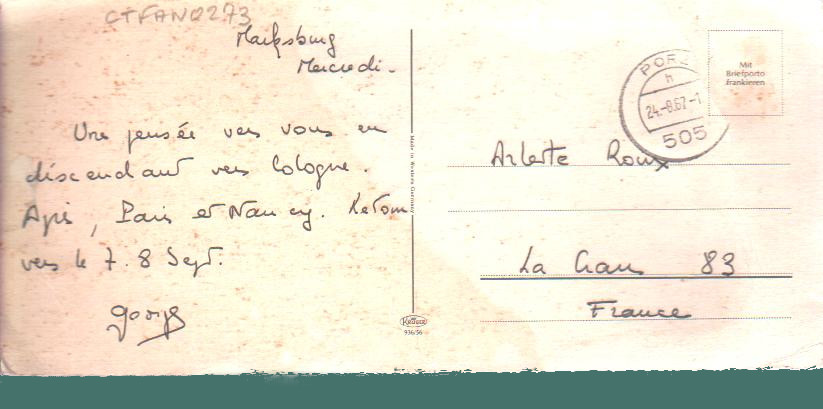 CTFAN0273
Marksburg
Mercredi.
Une pensée vers vous en
descendant vers Cologne.
Après, Paris et Nancy. Retour
vers le 7.8 Sept.
Georges
Made in Western Germany
Krüger
936/56
Mit
Briefporto
frankieren
PORZ
h
24.-8.67.-1
505
Arlette Roux
La Crau 83
France